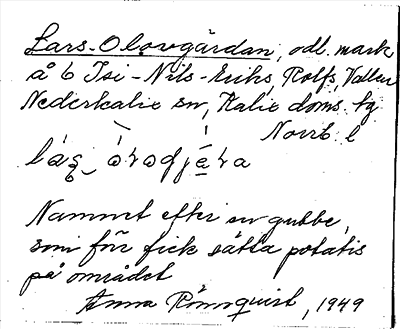 Lars-Olovgärdan, odl. mark
å 6 Isi-Nils-Eriks, Rolfs, Vallen
Nederkalix sn, Kalix doms. tg
Norrb l
Namnet efter en gubbe,
som för fick sätta potatis
på området
Anna Rönnquist, 1949